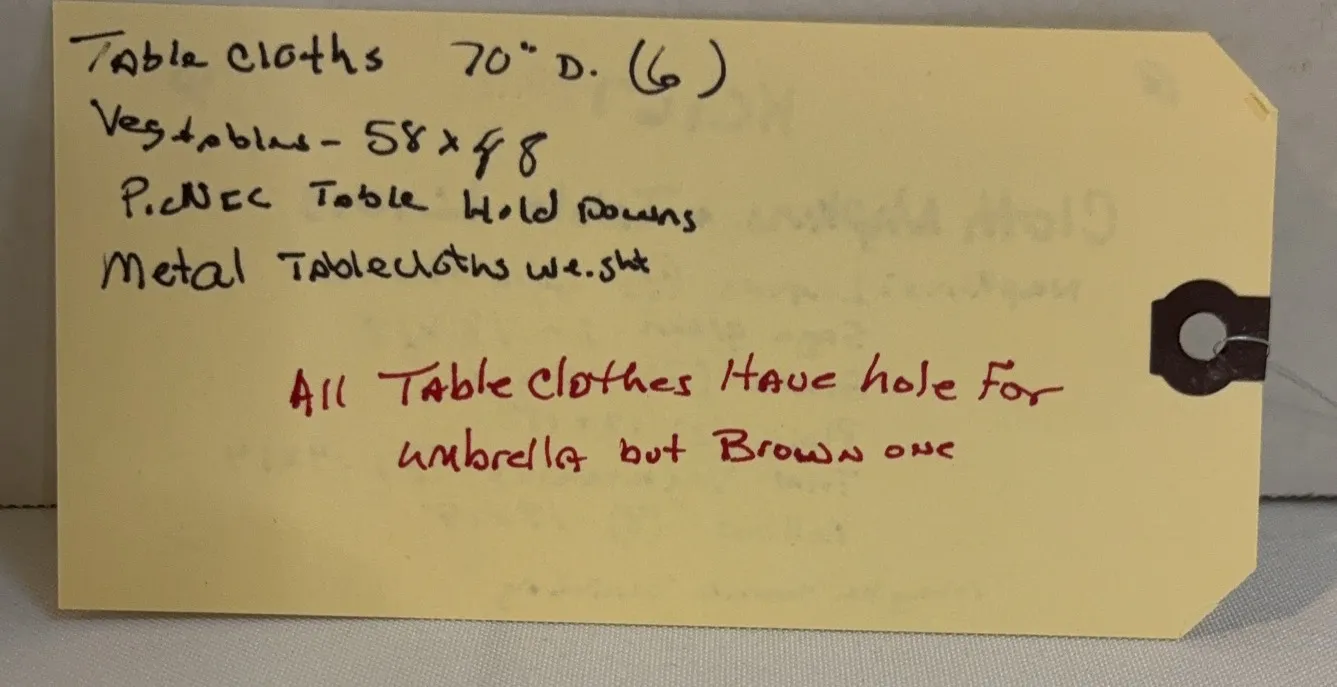 Table Cloths 70" D. (6)
Vegtables - 58 x 98
PicNEC Table Hold Downs
Metal Tablecloths weight
All Table Clothes Have hole For
umbrella but Brown one